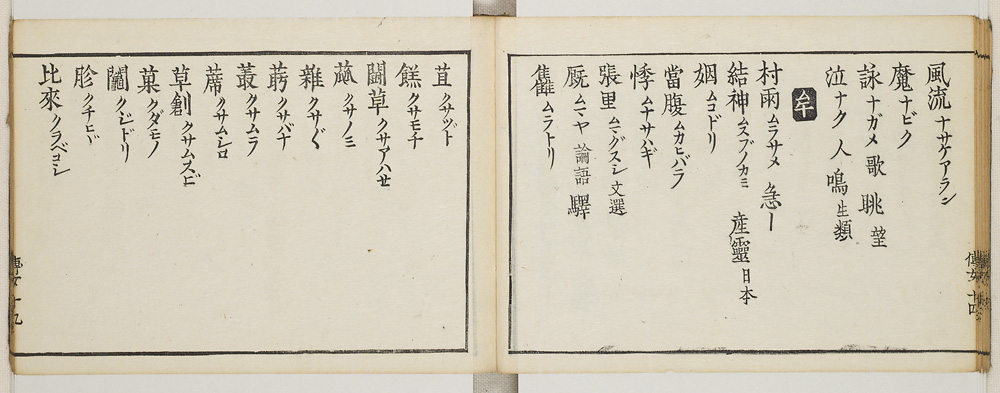 風流 ナサケアラン
魔 ナビク
詠 ナガメ 歌 眺 望
泣 ナク 人 鳴 生類
牟
村雨 ムラサメ 急ー
結神 ムスブノカミ 産靈 日本
姻 ムコドリ
當腹 ムカヒバラ
悸 ムナサハギ
張里 ムマグスシ 文選
厩 ムマヤ 論語 驛
雋 ムラトリ
傳女 十四
苴 クサツト
餻 クサモチ
鬪草 クサアハせ
蓏 クサノミ
雜 クサ〲
蒭 クサバナ
叢 クサムラ
蓆 クサムシロ
草創 クサムスビ
菓 クダモノ
鬮 クジドリ
胗 クチヒヾ
比來 クラベコシ
傳女 十九